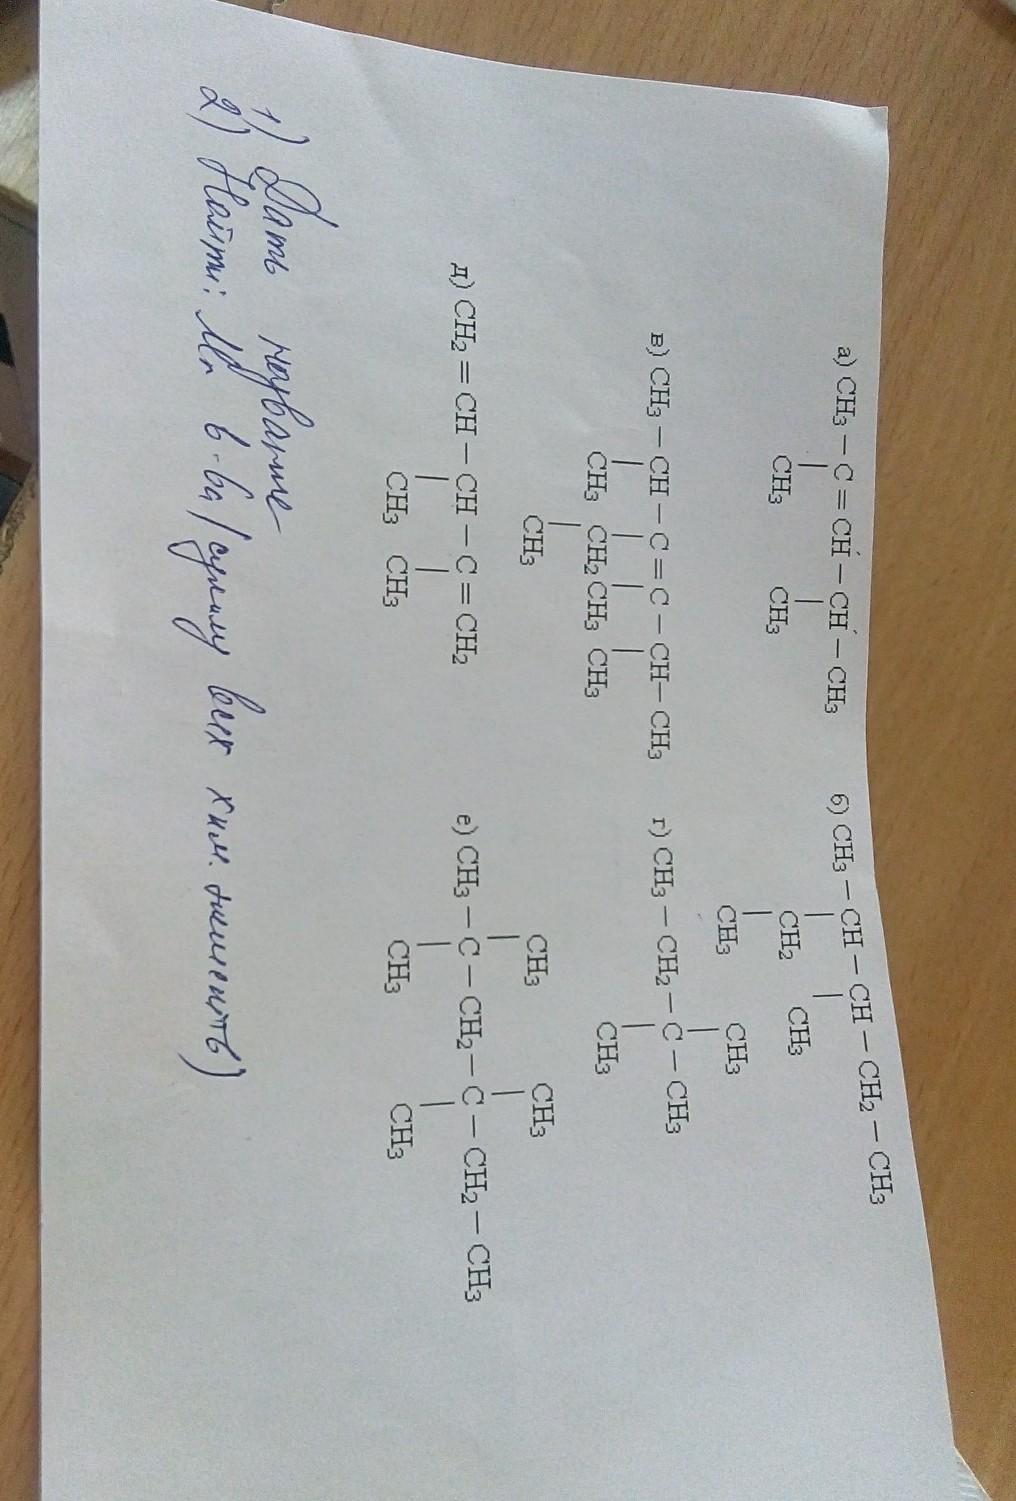 а) CH₃ — C = CH — CH — CH₃
CH₃ CH₃
б) CH₃ — CH — CH — CH₂ — CH₃
CH₂ CH₃
CH₃
в) CH₃ — CH — C = C — CH — CH₃
CH₃ CH₂ CH₃ CH₃
CH₃
г) CH₃ — CH₂ — C — CH₃
CH₃
CH₃
д) CH₂ = CH — CH — C = CH₂
CH₃ CH₃
е) CH₃ — C — CH₂ — C — CH₂ — CH₃
CH₃ CH₃
CH₃ CH₃
1) Дать название
2) Найти: Mr в-ва (сумму всех хим. элементв)